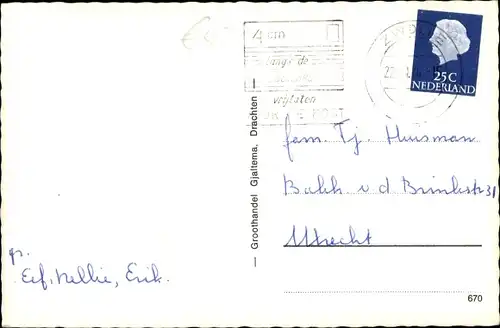 4 cm
langs de
vrijlaten
25 C
NEDERLAND
Groothandel Gjaltema, Drachten
fam. Tj. Huisman
Bakh. v d Brinkestr 31
Utrecht
gr.
Eef, Nellie, Erik.
670